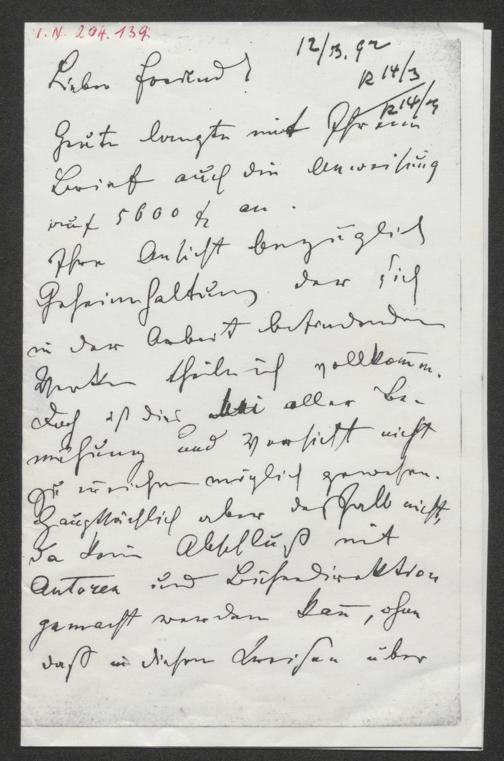 I. N. 204.139.
12/3. 92
R 14/3
R 14/3
Lieber Freund!
Heute langte mit Ihrem
Brief auch die Anweisung
auf 5600 fl an.
Ihre Ansicht bezüglich
Geheimhaltung der sich
in der Arbeit befindenden
Werken theile ich vollkomm.
Doch ist dies bei aller Be-
mühung und Vorsicht nicht
zu erreichen möglich gewesen.
Hauptsächlich aber deshalb nicht,
da kein Abschluß mit
Autoren und Bühendirektion
gemacht werden kan̄, ohne
daß in diesen Kreisen über